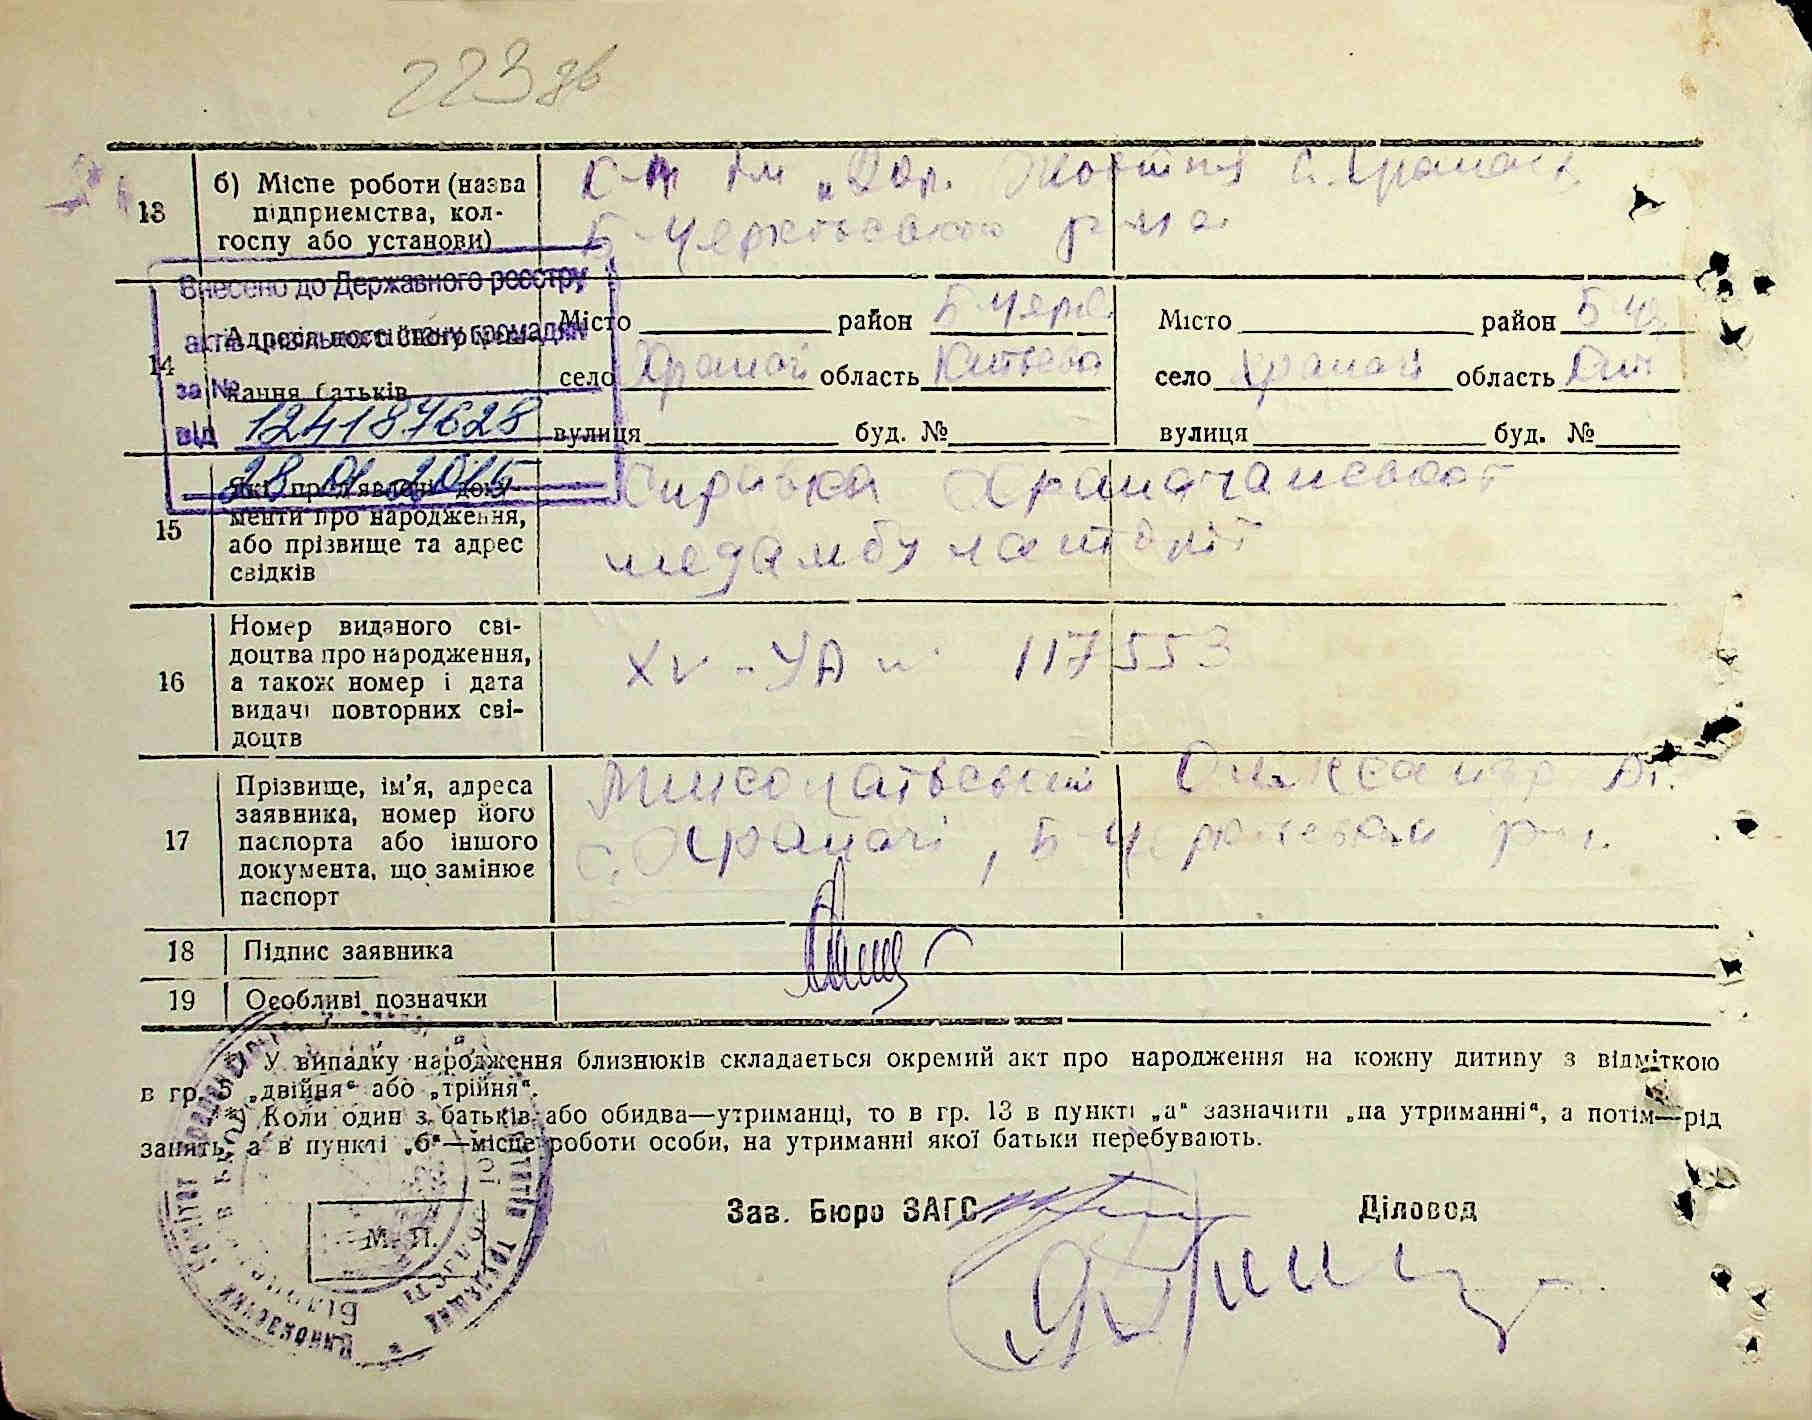 223 зв
13 б) Місце роботи (назва
підприємства, кол-
госпу або установи)
К-п ім „20 р. Жовтня с. Храпачі
Б-Черківського р-на
Внесено до Державного реєстру
актів цивільного стану громадян
за №
від 124187628
28 01 2015
14 Адреса постійного
вання батьків
Місто район Б-Церк
село Храпачі область Київська
вулиця буд. №
Місто район Б-Це
село Храпачі область Київ
вулиця буд. №
15 Які пред'явлені доку-
менти про народження,
або прізвище та адрес
свідків
Справка Храпачанської
медамбулаторії
16 Номер виданого сві-
доцтва про народження,
а також номер і дата
видачі повторних сві-
доцтв
XV - УА № 117553
17 Прізвище, ім'я, адреса
заявника, номер його
паспорта або іншого
документа, що замінює
паспорт
Олександр
с. Храпачі, Б-Церківськ р-н.
18 Підпис заявника
19 Особливі позначки
У випадку народження близнюків складається окремий акт про народження на кожну дитину з відміткою
в гр. 5 „двійня“ або „трійня“.
Коли один з батьків або обидва—утриманці, то в гр. 13 в пункті „а“ зазначити „на утриманні“, а потім—рід
занять, а в пункті „б“—місце роботи особи, на утриманні якої батьки перебувають.
Зав. Бюро ЗАГС Діловод
М. П.
Виконавчий Комітет